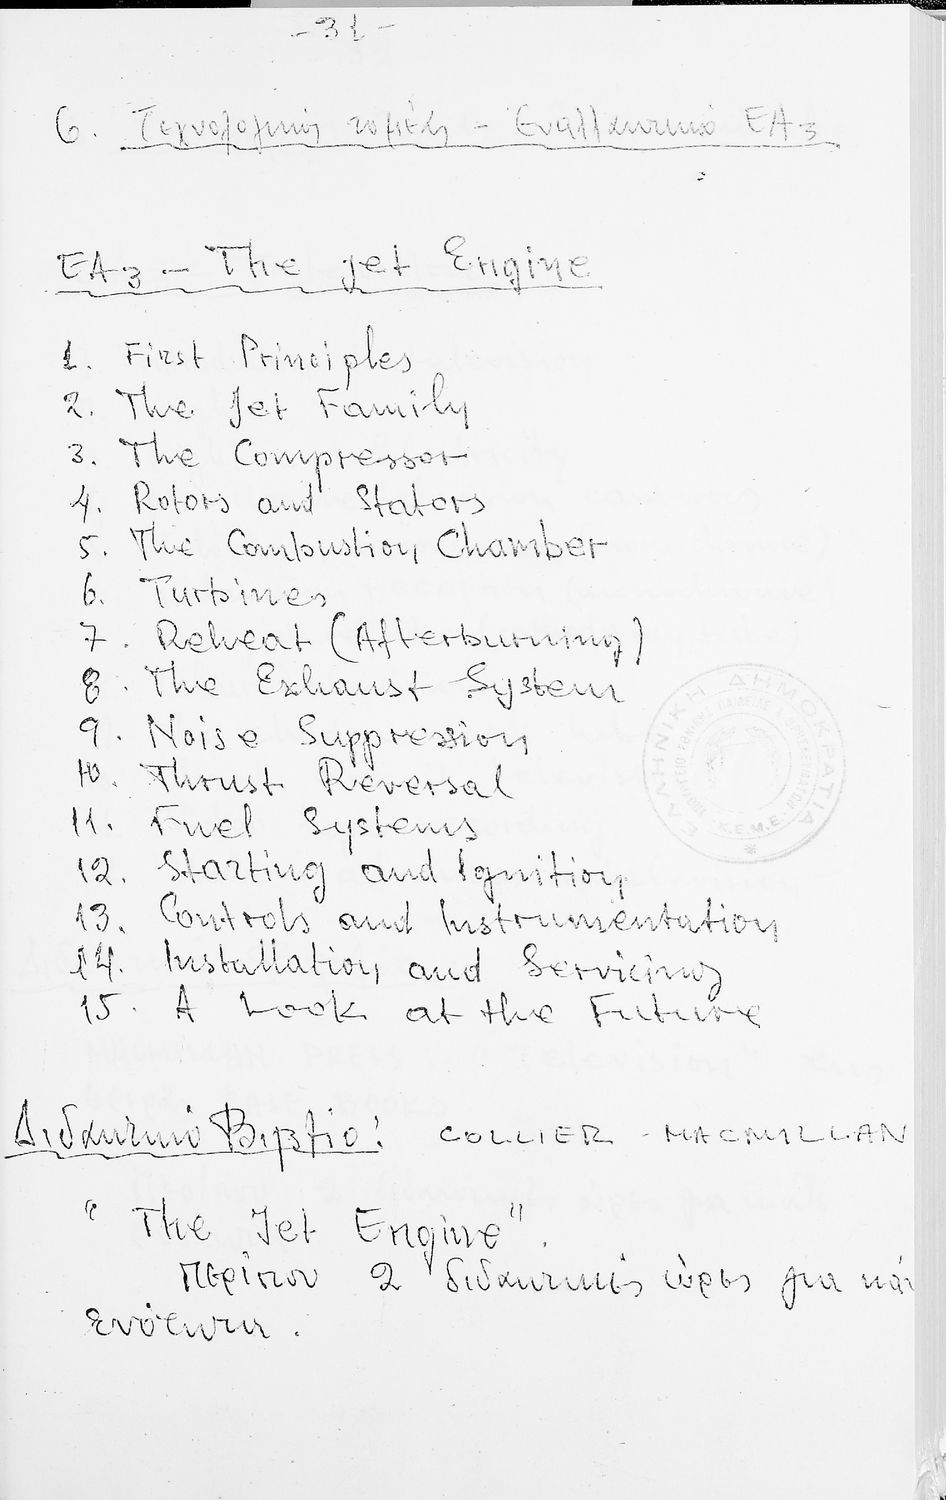 -31-
6. Τεχνολογικός τομέας - Εναλλακτικό ΕΑ3
ΕΑ3 - The Jet Engine
1. First Principles
2. The Jet Family
3. The Compressor
4. Rotors and Stators
5. The Combustion Chamber
6. Turbines
7. Reheat (Afterburning)
8. The Exhaust System
9. Noise Suppression
10. Thrust Reversal
11. Fuel Systems
12. Starting and Ignition
13. Controls and Instrumentation
14. Installation and Servicing
15. A Look at the Future
ΕΛΛΗΝΙΚΗ ΔΗΜΟΚΡΑΤΙΑ
Κ.Ε.Μ.Ε.
Διδακτικό Βιβλίο: COLLIER - MACMILLAN
"The Jet Engine".
Περίπου 2 διδακτικές ώρες για κάθε
ενότητα.